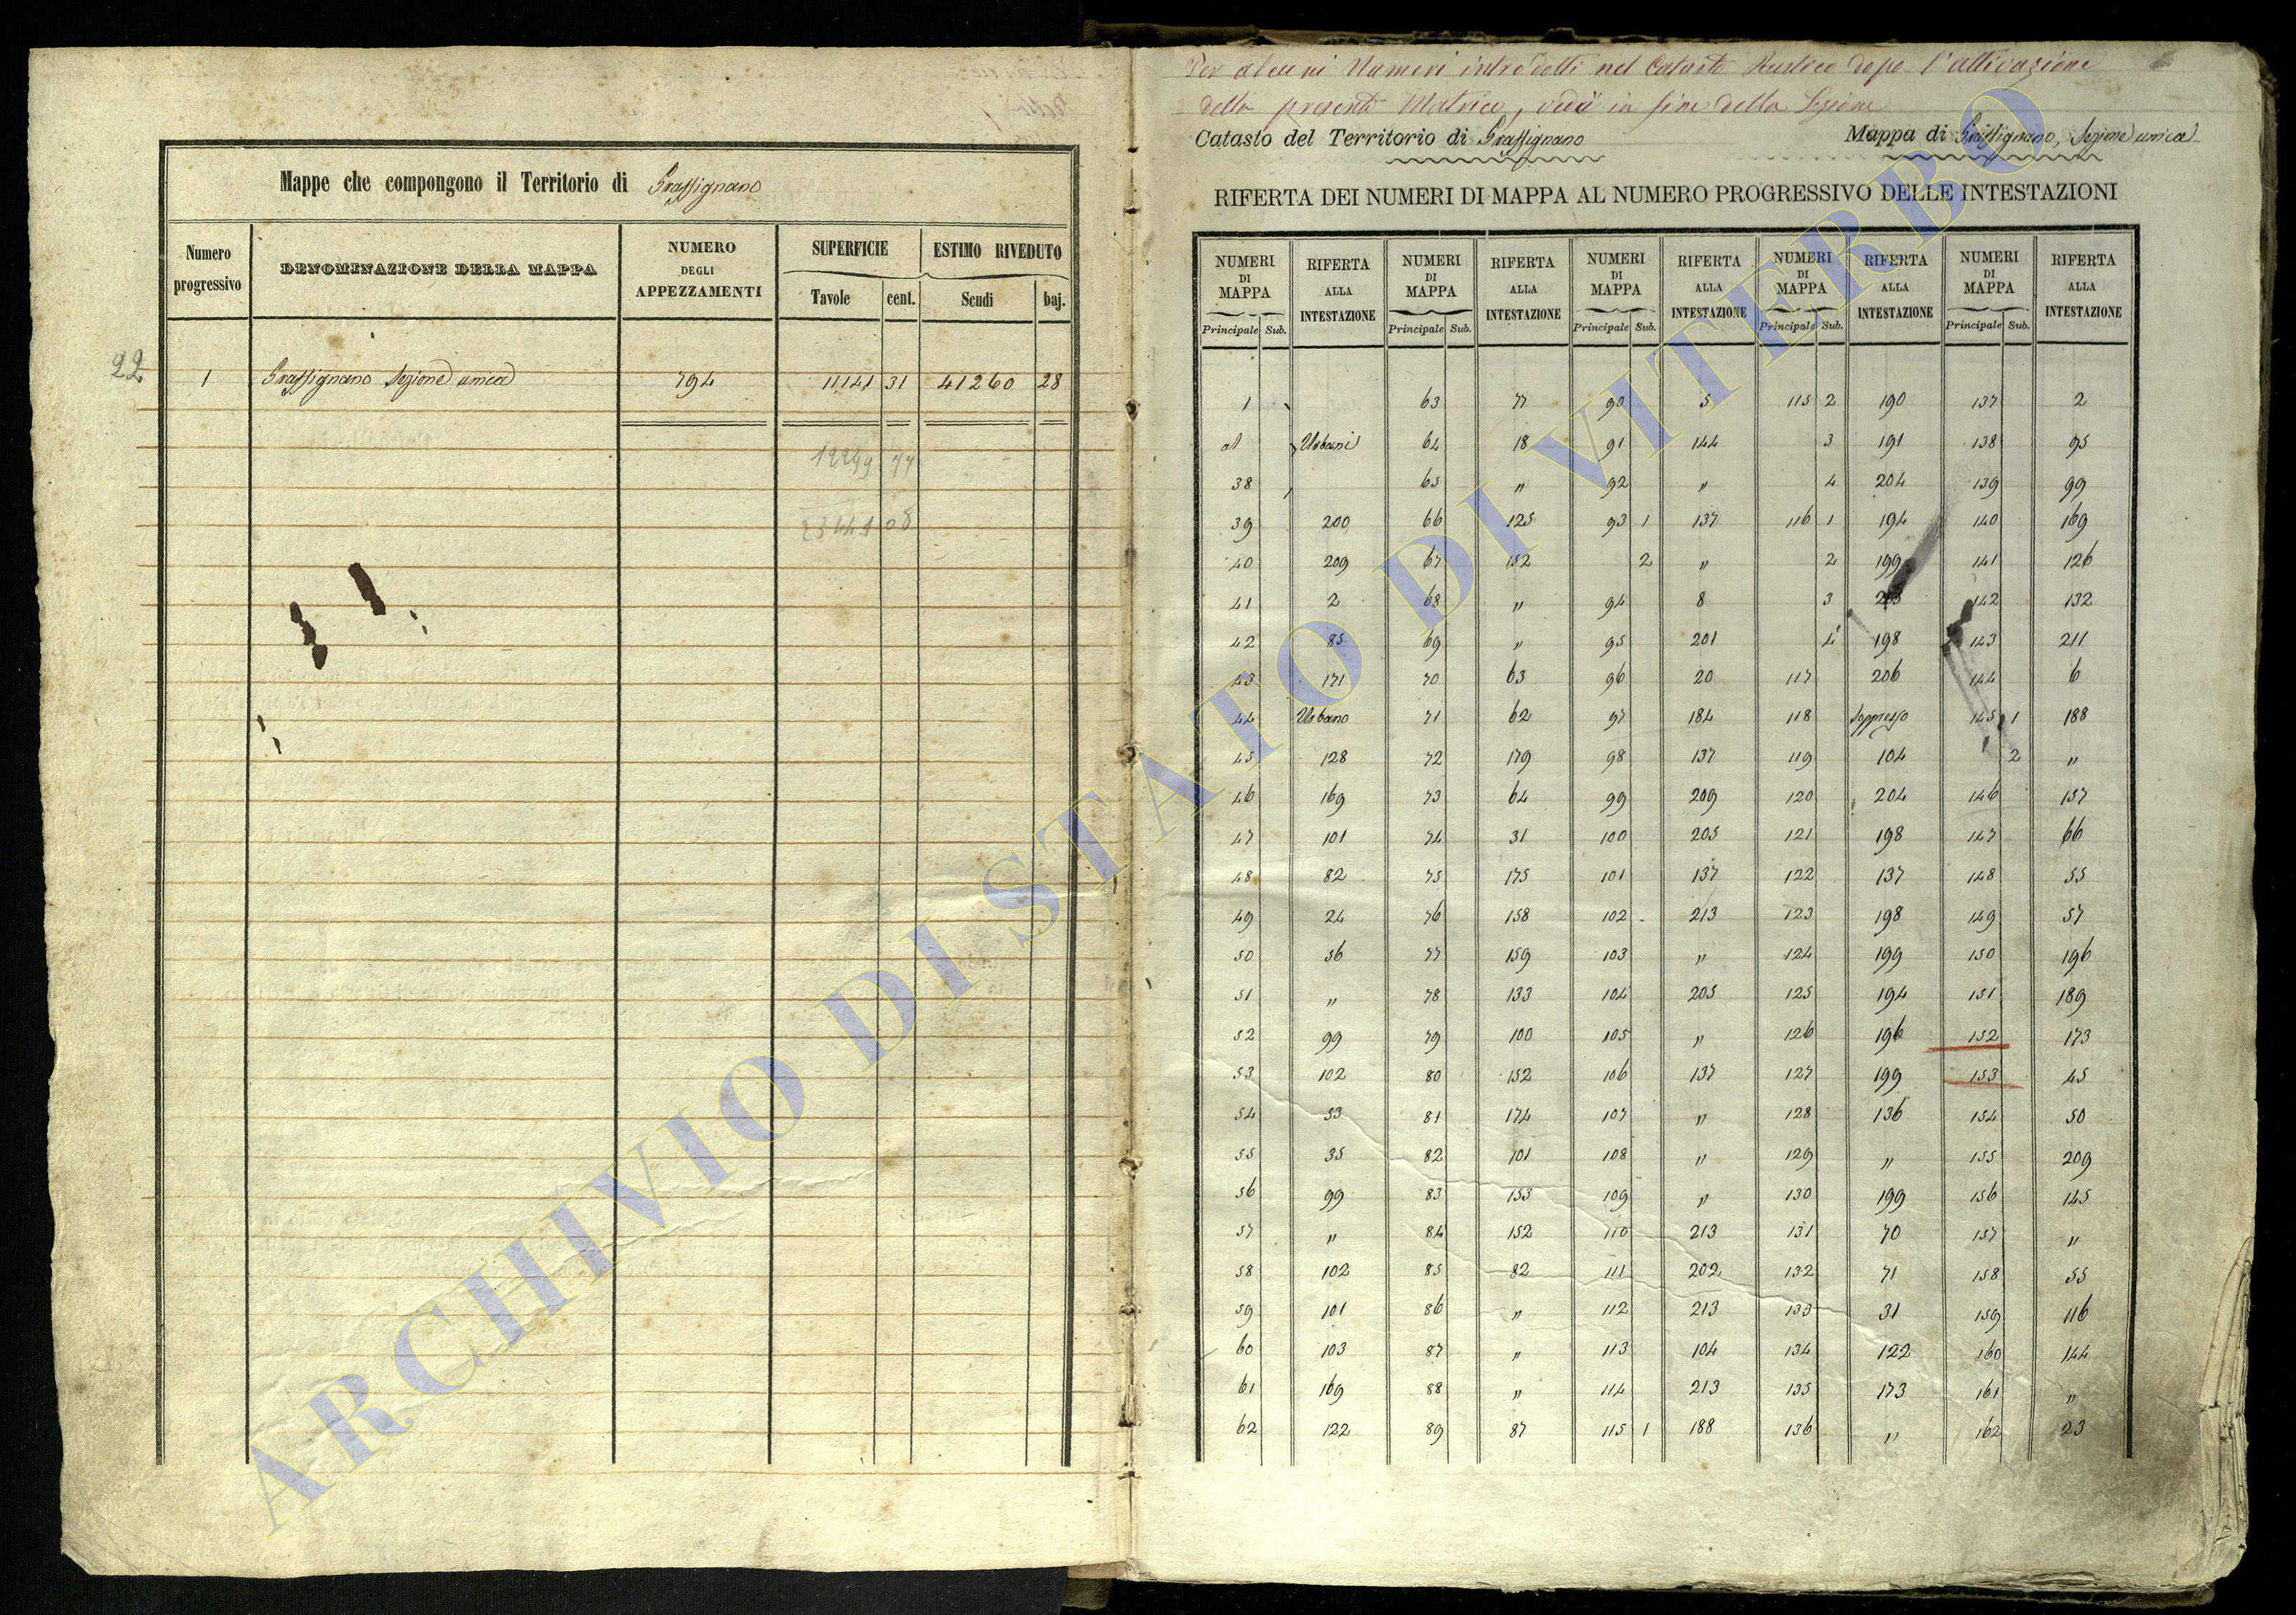 Mappe che compongono il Territorio di Graffignano
Numero progressivo | DENOMINAZIONE DELLA MAPPA | NUMERO DEGLI APPEZZAMENTI | SUPERFICIE | ESTIMO RIVEDUTO
Tavole | cent. | Scudi | baj.
22
1 | Graffignano Sezione unica | 794 | 11141 | 31 | 41260 | 28
Per alcuni Numeri introdotti nel Catasto Rustico dopo l'attivazione
della presente Matrice, vedi in fine della Sezione
Catasto del Territorio di Graffignano Mappa di Graffignano, Sezione unica
RIFERTA DEI NUMERI DI MAPPA AL NUMERO PROGRESSIVO DELLE INTESTAZIONI
NUMERI DI MAPPA | RIFERTA ALLA INTESTAZIONE | NUMERI DI MAPPA | RIFERTA ALLA INTESTAZIONE | NUMERI DI MAPPA | RIFERTA ALLA INTESTAZIONE | NUMERI DI MAPPA | RIFERTA ALLA INTESTAZIONE | NUMERI DI MAPPA | RIFERTA ALLA INTESTAZIONE
Principale | Sub. | Principale | Sub. | Principale | Sub. | Principale | Sub. | Principale | Sub.
1 | 63 | 77 | 90 | 5 | 115 2 | 190 | 137 | 2
al | Urbani | 64 | 18 | 91 | 144 | 3 | 191 | 138 | 95
38 | 65 | " | 92 | " | 4 | 204 | 139 | 99
39 | 200 | 66 | 125 | 93 1 | 137 | 116 1 | 194 | 140 | 169
40 | 209 | 67 | 152 | 2 | " | 2 | 199 | 141 | 126
41 | 2 | 68 | " | 94 | 8 | 3 | 142 | 132
42 | 85 | 69 | " | 95 | 201 | 4 | 198 | 143 | 211
43 | 171 | 70 | 63 | 96 | 20 | 117 | 206 | 144 | 6
44 | Urbano | 71 | 62 | 97 | 184 | 118 | Soppresso | 145 1 | 188
45 | 128 | 72 | 179 | 98 | 137 | 119 | 104 | 2 | "
46 | 169 | 73 | 64 | 99 | 209 | 120 | 204 | 146 | 157
47 | 101 | 74 | 31 | 100 | 205 | 121 | 198 | 147 | 66
48 | 82 | 75 | 175 | 101 | 137 | 122 | 137 | 148 | 55
49 | 24 | 76 | 158 | 102 | 213 | 123 | 198 | 149 | 57
50 | 56 | 77 | 159 | 103 | " | 124 | 199 | 150 | 196
51 | " | 78 | 133 | 104 | 205 | 125 | 194 | 151 | 189
52 | 99 | 79 | 100 | 105 | " | 126 | 196 | 152 | 173
53 | 102 | 80 | 152 | 106 | 137 | 127 | 199 | 153 | 45
54 | 53 | 81 | 174 | 107 | " | 128 | 136 | 154 | 50
55 | 35 | 82 | 101 | 108 | " | 129 | " | 155 | 209
56 | 99 | 83 | 153 | 109 | " | 130 | 199 | 156 | 145
57 | " | 84 | 152 | 110 | 213 | 131 | 70 | 157 | "
58 | 102 | 85 | 82 | 111 | 202 | 132 | 71 | 158 | 55
59 | 101 | 86 | " | 112 | 213 | 133 | 31 | 159 | 116
60 | 103 | 87 | " | 113 | 104 | 134 | 122 | 160 | 144
61 | 169 | 88 | " | 114 | 213 | 135 | 173 | 161 | "
62 | 122 | 89 | 87 | 115 1 | 188 | 136 | " | 162 | 23
ARCHIVIO DI STATO DI VITERBO